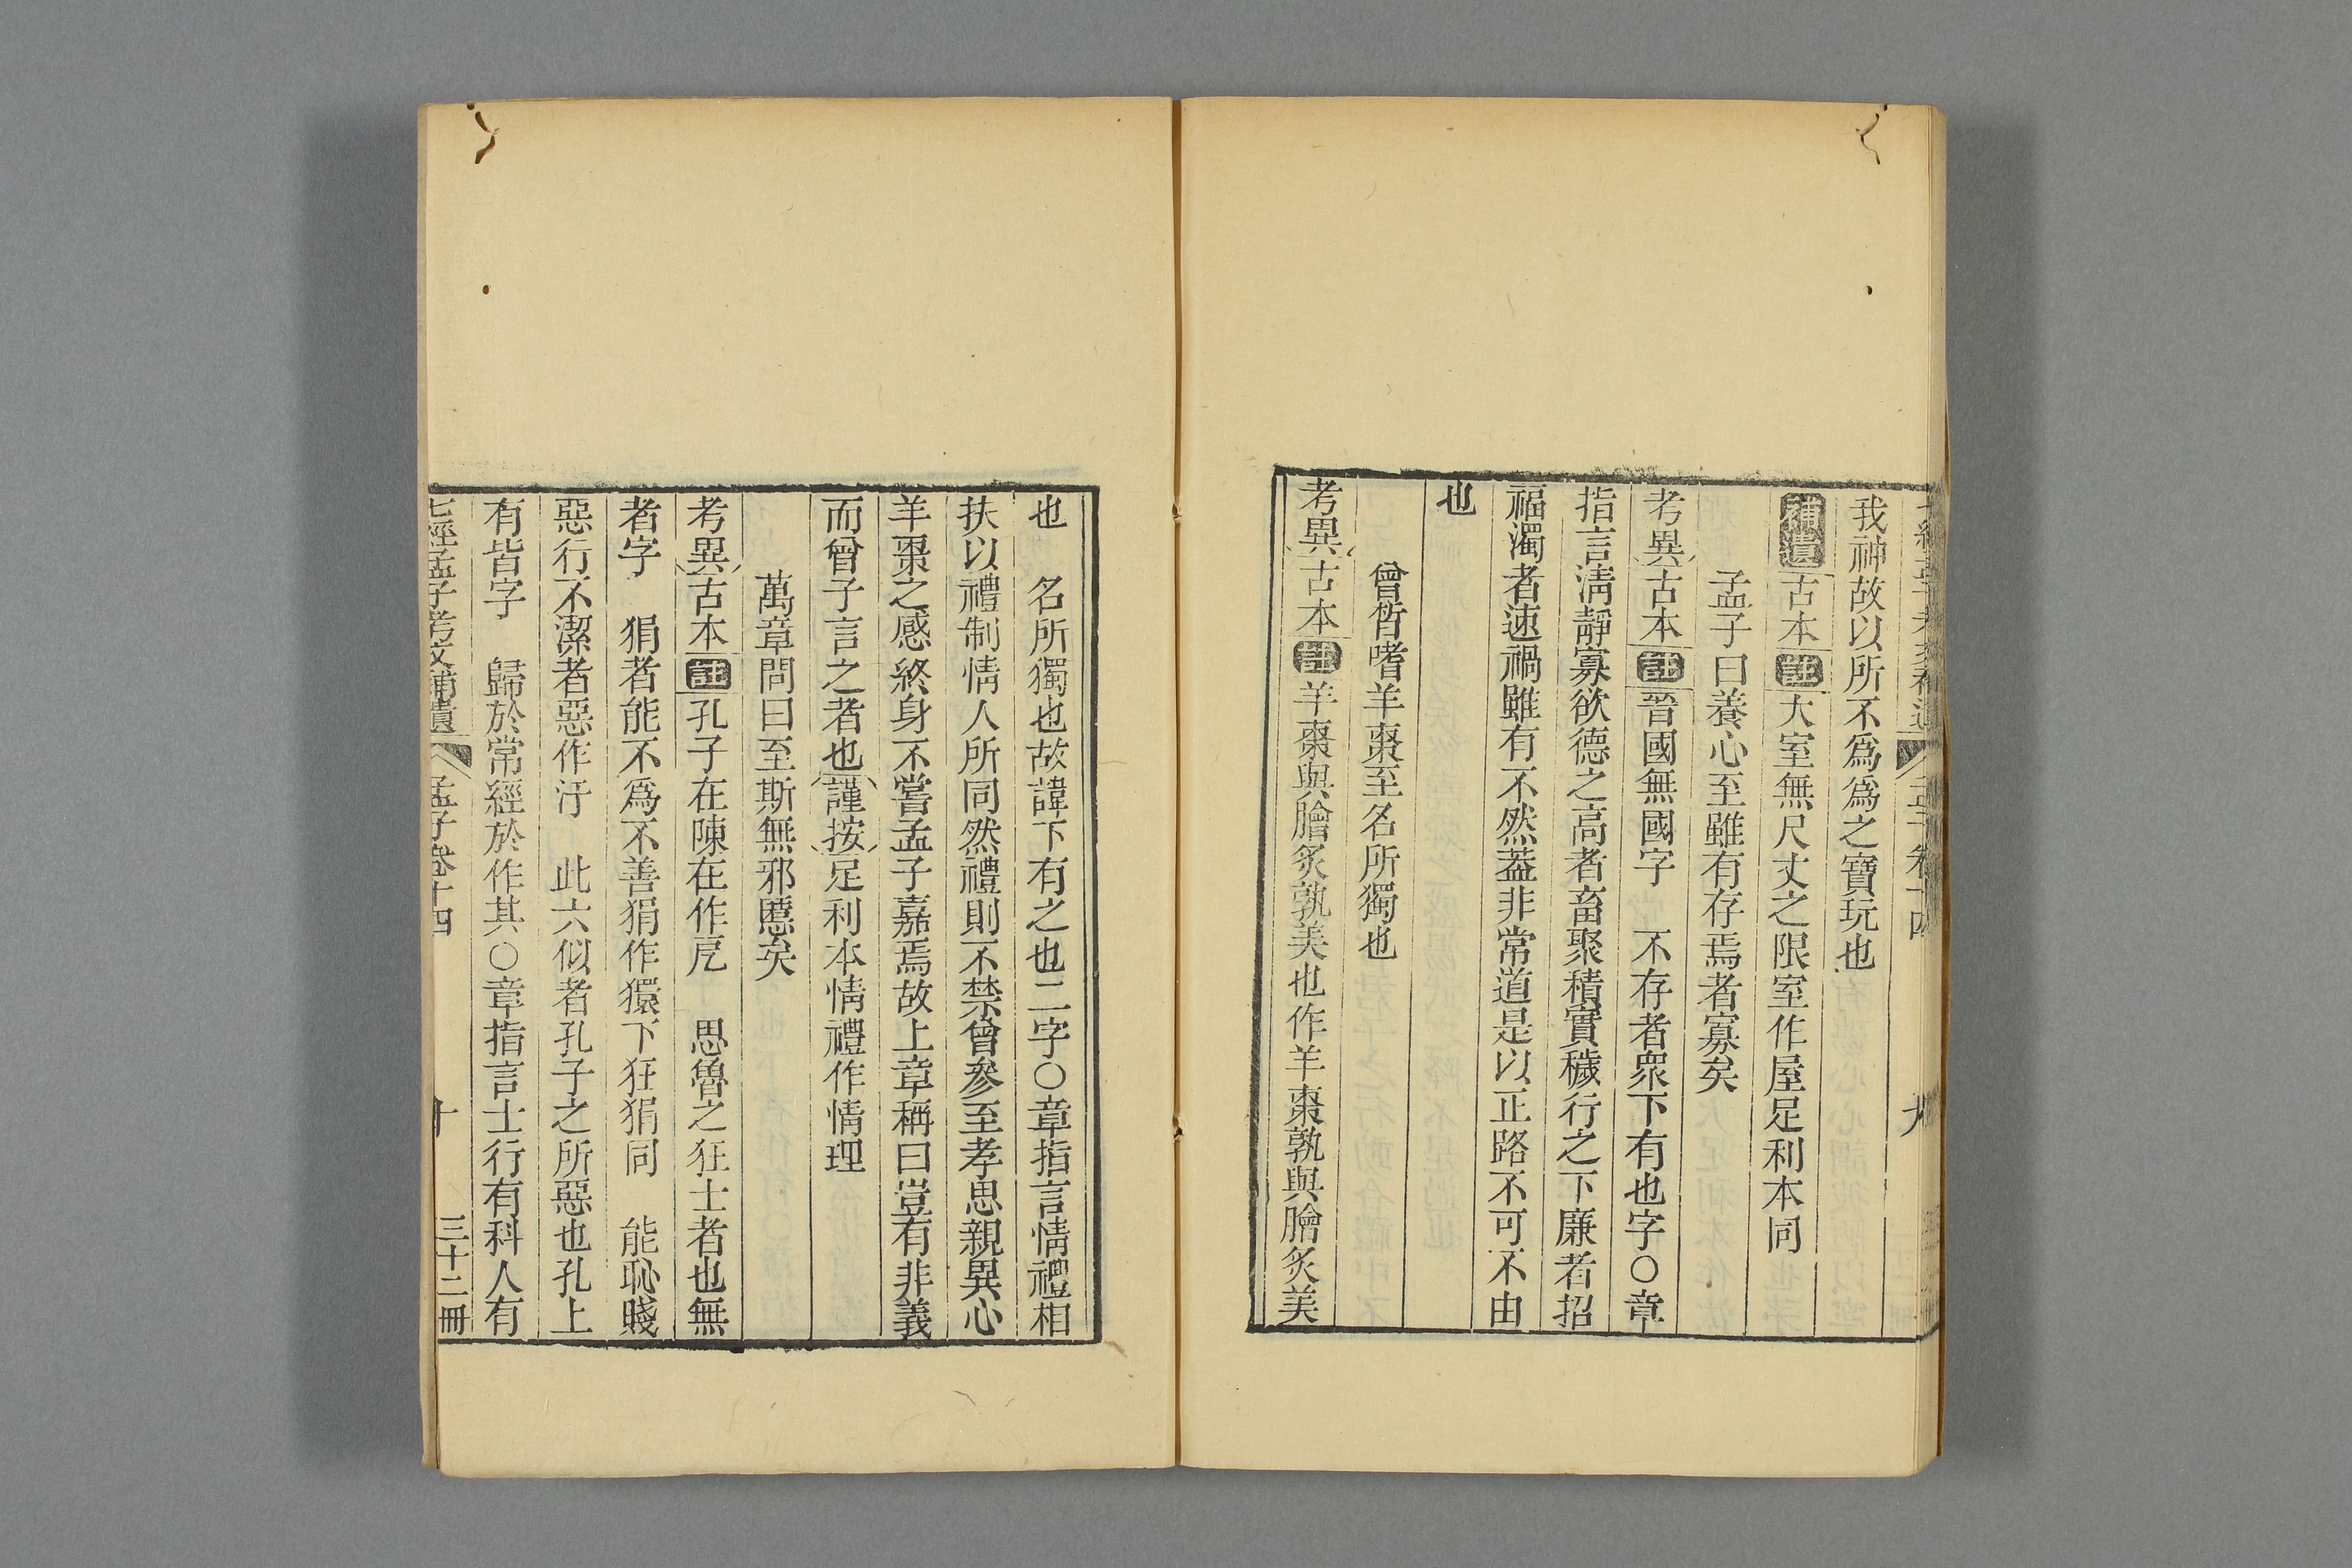 我神故以所不爲爲之寶玩也
補遺古本註大室無尺丈之限室作屋足利本同
孟子曰養心至雖有存焉者寡矣
考異古本註晉國無國字　不存者衆下有也字○章
指言淸靜寡欲德之高者畜聚積實穢行之下廉者招
福濁者速禍雖有不然蓋非常道是以正路不可不由
也
曾晳嗜羊棗至名所獨也
考異古本註羊棗與膾炙孰美也作羊棗孰與膾炙美
也　名所獨也故諱下有之也二字○章指言情禮相
扶以禮制情人所同然禮則不禁曾參至孝思親異心
羊棗之感終身不嘗孟子嘉焉故上章稱曰豈有非義
而曾子言之者也謹按足利本情禮作情理
萬章問曰至斯無邪慝矣
考異古本註孔子在陳在作戹　思魯之狂士者也無
者字　狷者能不爲不善狷作獧下狂狷同　能恥賤
惡行不潔者惡作汙　此六似者孔子之所惡也孔上
有皆字　歸於常經於作其○章指言士行有科人有
七經孟子考文補遺　孟子卷十四　十　三十二冊